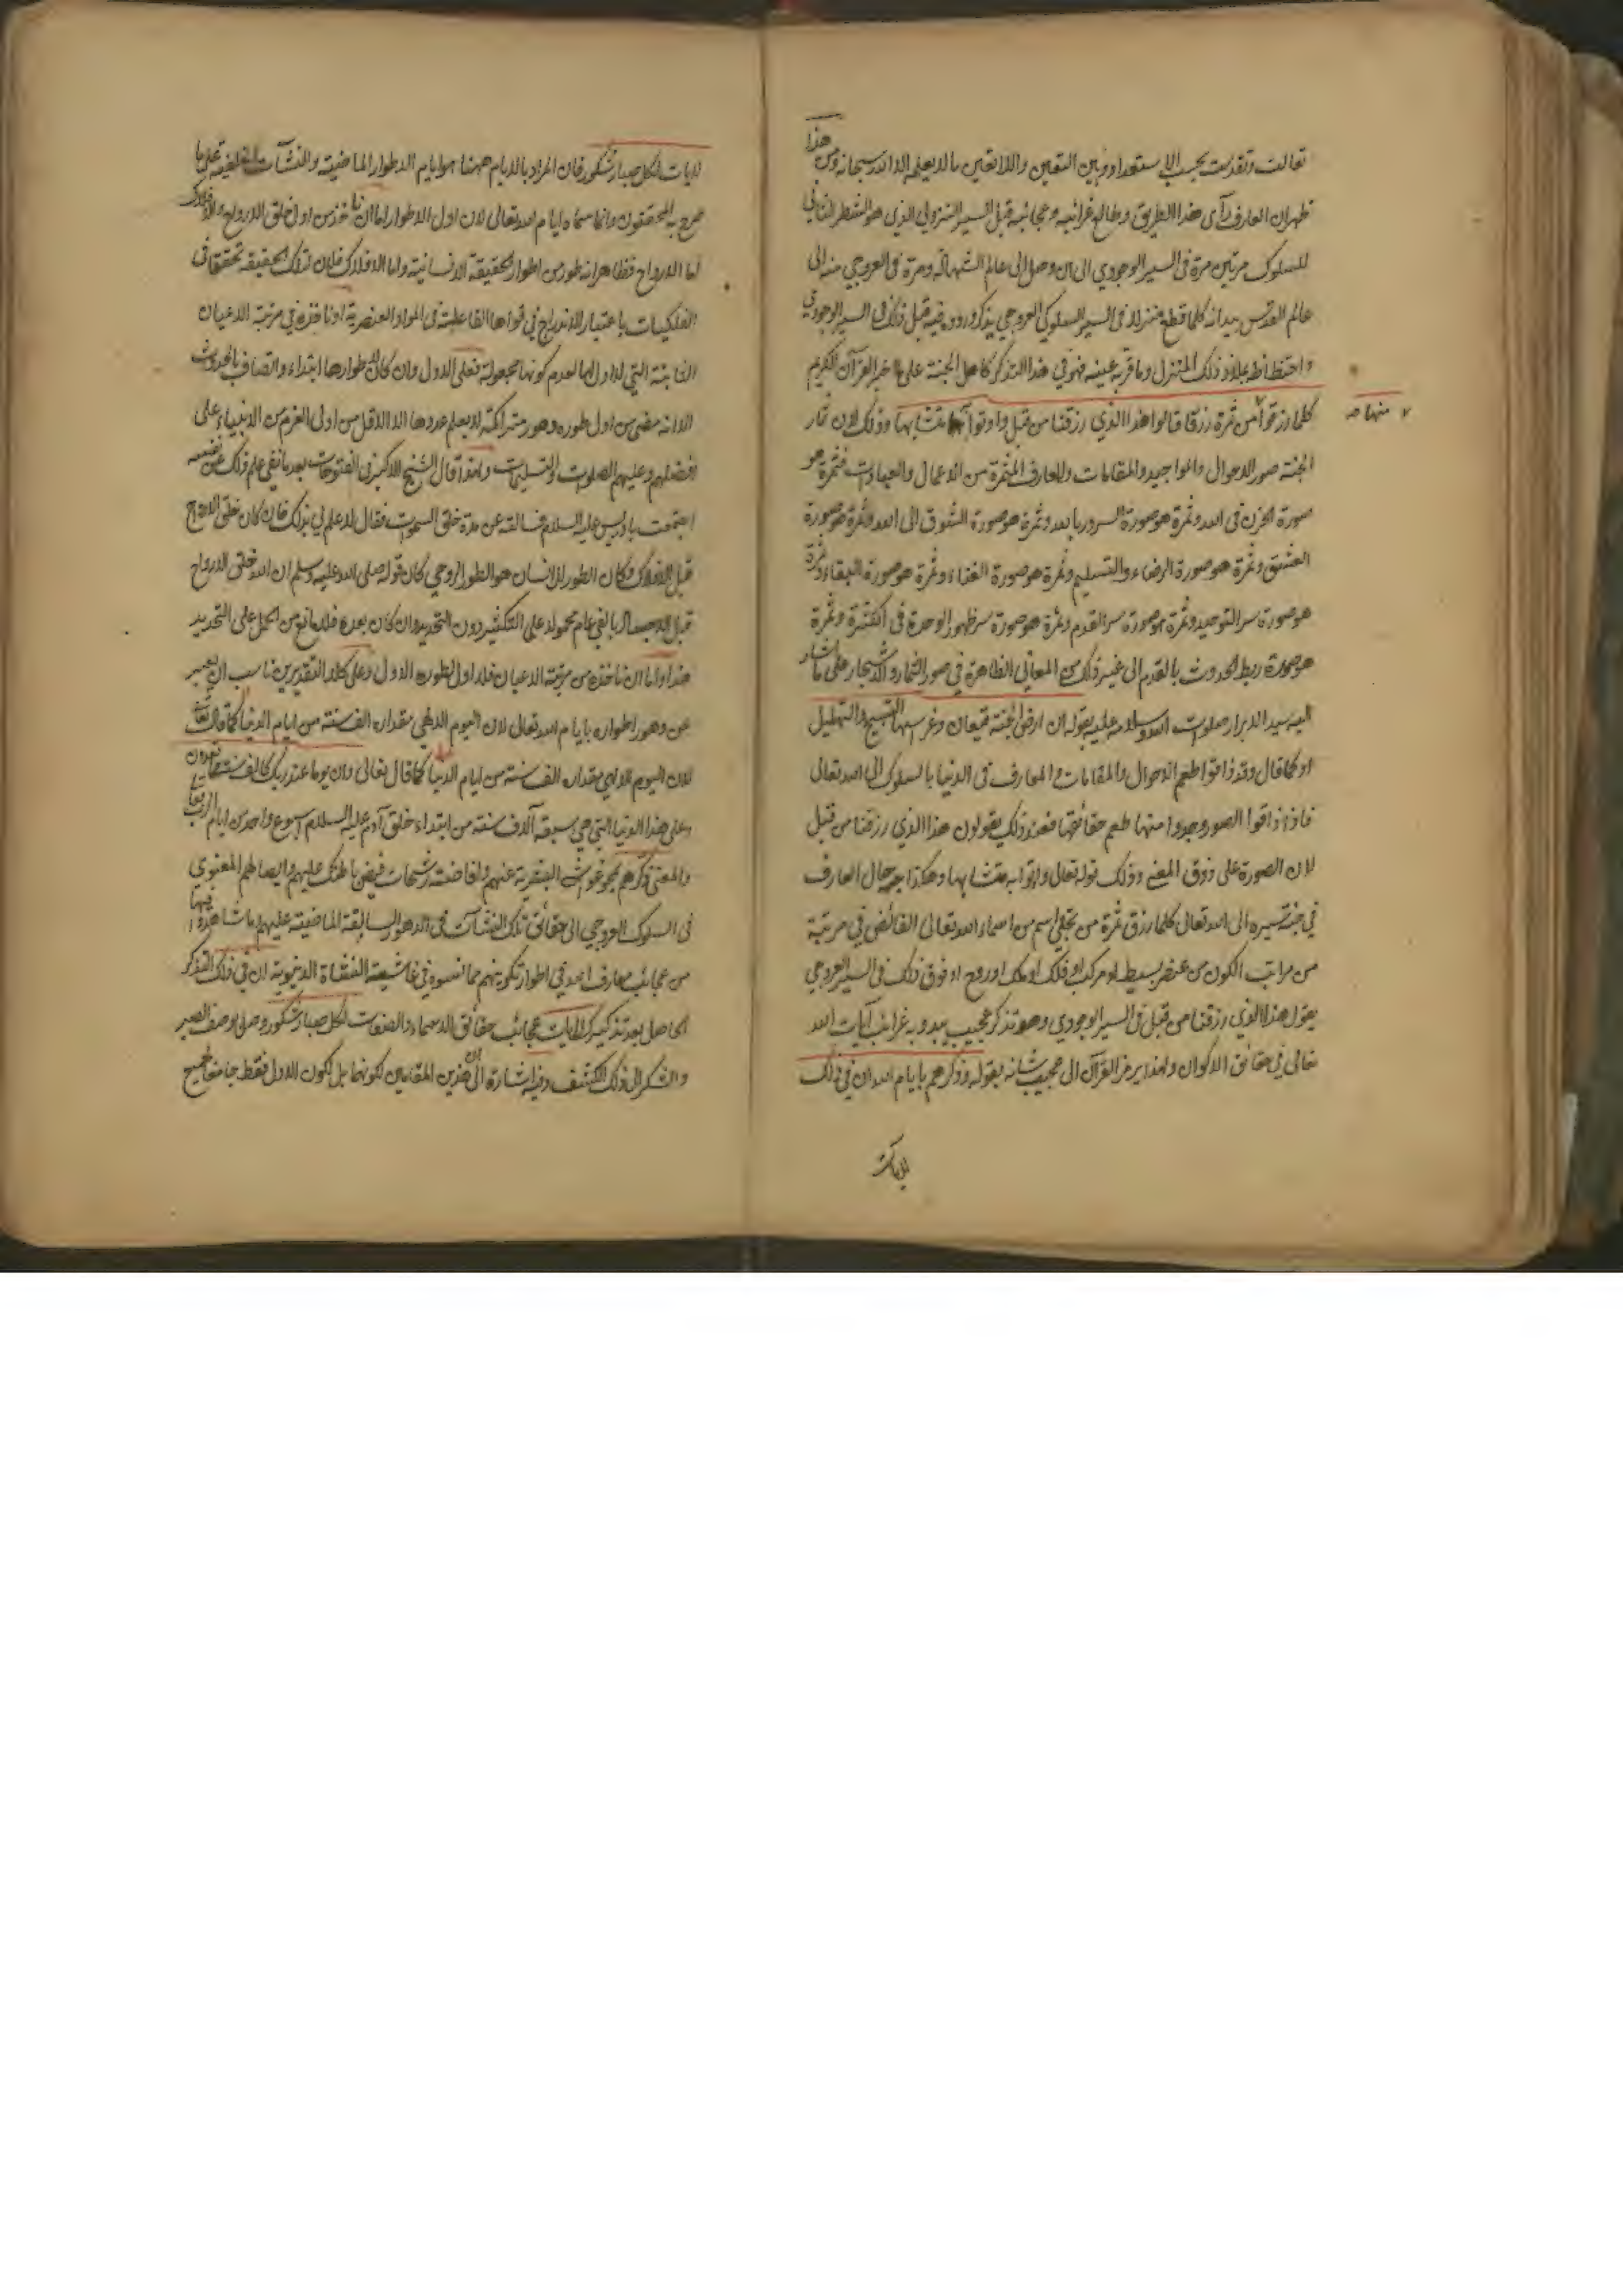 تعالت وتقدست بحسب الاستعداد وبين التعين واللاتعين ما لا يعلمه الا الله سبحانه ومن هذا
ظهر ان العارف رأى هذا الطريق وطالع غرائبه وعجائبه قبل السير النزولي الذي هو الشطر الثاني
للسلوك مرتين مرة في السير الوجودي الى ان وصل الى عالم الشهادة ومرة في العروجي منه الى
عالم القدس بيد انه كلما قطع منزلا في السير السلوكي العروجي يذكر وروده فيه قبل ذلك في السير الوجودي
واحتظاظه بملاذ ذلك المنزل وما قر به عينه فهو في هذا التذكر كاهل الجنة على ما اخبر القرآن الكريم
كلما رزقوا من ثمرة رزقا قالوا هذا الذي رزقنا من قبل واوتوا به متشابها وذلك لان ثمار
منها صح
الجنة صور الاحوال والمواجيد والمقامات والمعارف المثمرة من الاعمال والعبادات فثمرة هو
صورة الحزن في الله وثمرة هو صورة السرور بالله وثمرة هو صورة الشوق الى الله وثمرة هو صورة
العشق وثمرة هو صورة الرضاء والتسليم وثمرة هو صورة الفناء وثمرة هو صورة البقاء وثمرة
هو صورة سر التوحيد وثمرة هو صورة سر القدم وثمرة هو صورة سر ظهور الوحدة في الكثرة وثمرة
هو صورة ربط الحدوث بالقدم الى غير ذلك من المعاني الظاهرة في صور الثمار والاشجار على ما اشار
اليه سيد الابرار صلوات الله وسلامه عليه بقوله ان ارض الجنة قيعان وغرسها التسبيح والتهليل
او كما قال وقد ذاقوا طعم الاحوال والمقامات والمعارف في الدنيا بالسلوك الى الله تعالى
فاذا ذاقوا الصور وجدوا منها طعم حقائقها فعند ذلك يقولون هذا الذي رزقنا من قبل
لان الصورة على ذوق المعنى وذلك قوله تعالى واتوا به متشابها وهكذا حال العارف
في جنة سيره الى الله تعالى كلما رزق ثمرة من تجلي اسم من اسماء الله تعالى الفائض في مرتبة
من مراتب الكون من عنصر بسيط او مركب او فلك او ملك او روح او فوق ذلك في السير العروجي
يقول هذا الذي رزقنا من قبل في السير الوجودي وهو تذكر عجيب يبدو به غرائب آيات الله
تعالى في حقائق الاكوان ولهذا يرمز القرآن الى عجيب شانه بقوله وذكرهم بايام الله ان في ذلك
لايات
لايات لكل صبار شكور فان المراد بالايام ههنا هو ايام الاطوار الماضية والنشآت عليها
صرح به المحققون وانما سماه ايام الله تعالى لان اول الاطوار اما ان ناخذ من اول خلق الارواح والافلاك
اما الارواح فظاهر انه طور من اطوار الحقيقة الانسانية واما الافلاك فلان لتلك الحقيقة تحققا في
الفلكيات باعتبار الاندراج في قواها الفاعلية في المواد العنصرية او ناخذه في مرتبة الاعيان
الثابتة التي لا اول لها لعدم كونها مجعولة فعلى الاول وان كان لاطوارها ابتداء واتصاف بالحدوث
الا انه مضى من اول طوره دهور متراكمة لا يعلم عددها الا الاقل من اولي العزم من الانبياء على
افضلهم وعليهم الصلوات والتسليمات ولهذا قال الشيخ الاكبر في الفتوحات بعد ما نفى علم ذلك عن نفسه
اجتمعت بادريس عليه السلام فسالته عن مدة خلق السموات فقال لا علم لي بذلك فان كان خلق الارواح
قبل الافلاك وكان الطور للانسان هو الطور الروحي كان قوله صلى الله عليه وسلم ان الله خلق الارواح
قبل الاجساد بالفي عام محمولا على التكثير دون التحديد وان كان بعده فلا مانع من الحمل على التحديد
هذا واما ان ناخذه من مرتبة الاعيان فلا اول لطوره الاول وعلى كلا التقديرين ناسب ان يعبر
عن دهور اطواره بايام الله تعالى لان اليوم الالهي مقداره الف سنة من ايام الدنيا كما قال تعالى
لان اليوم الالهي مقداره الف سنة من ايام الدنيا كما قال تعالى وان يوما عند ربك كالف سنة مما تعدون
وعلى هذا الدنيا التي هي سبعة آلاف سنة من ابتداء خلق آدم عليه السلام اسبوع واحد من ايام الرب تعالى
والمعنى ذكرهم بمحو البشرية عنهم وافاضة رشحات فيض باطنك عليهم وايصالهم المعنوي
في السلوك العروجي الى حقائق تلك النشآت في الدهور السابقة الماضية عليهم ما شاهدوا فيها
من عجائب معارف الله في اطوار تكوينهم مما نسوه في غاشية النشاة الدنيوية ان في ذلك التذكر
الحاصل بعد تذكيرك لايات عجائب حقائق الاسماء والصفات لكل صبار شكور وصل بوصف الصبر
والشكر الى ذلك الكشف وفيه اشارة الى ان هذين المقامين لكونهما بل لكون الاول فقط جامعا لجميع